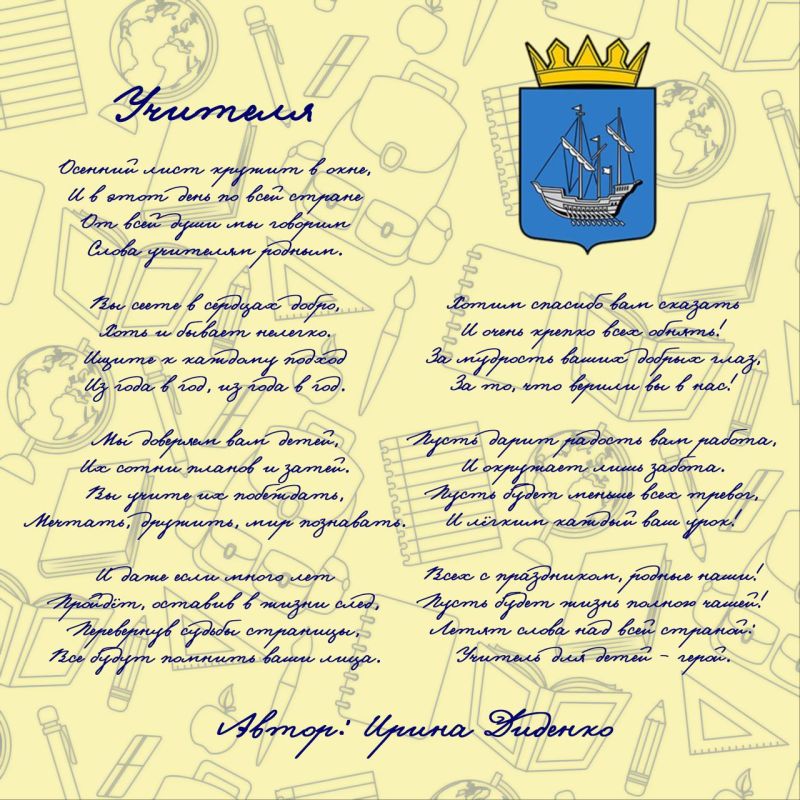 Учителя
Осенний лист кружит в окне,
И в этот день по всей стране
От всей души мы говорим
Слова учителям родным.
Вы сеете в сердцах добро,
Хоть и бывает нелегко.
Ищите к каждому подход
Из года в год, из года в год.
Мы доверяем вам детей,
Их сотни планов и затей.
Вы учите их побеждать,
Мечтать, дружить, мир познавать.
И даже если много лет
Пройдёт, оставив в жизни след,
Перевернув судьбы страницы,
Все будут помнить ваши лица.
Хотим спасибо вам сказать
И очень крепко всех обнять!
За мудрость ваших добрых глаз,
За то, что верили вы в нас!
Пусть дарит радость вам работа,
И окружает лишь забота.
Пусть будет меньше всех тревог,
И лёгким каждый ваш урок!
Всех с праздником, родные наши!
Пусть будет жизнь полною чашей!
Летят слова над всей страной:
Учитель для детей – герой.
Автор: Ирина Диденко